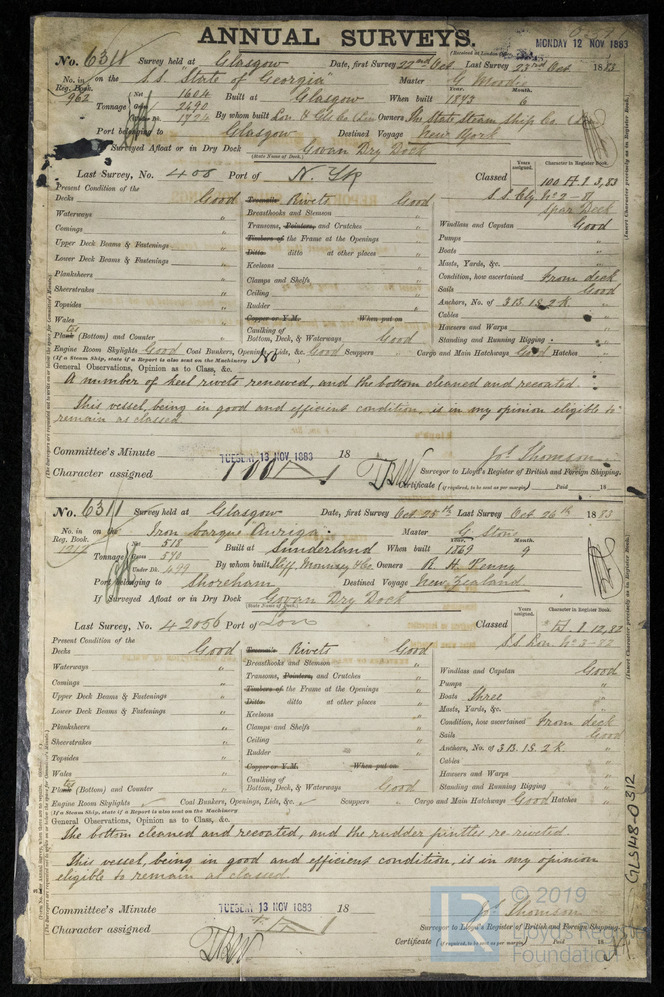 ANNUAL SURVEYS.
MONDAY 12 NOV 1883
No. 6311 Survey held at Glasgow Date, first Survey 22nd Oct. Last Survey 23rd Oct 1883
No. in Reg. Book. 962 on the S.S. "State of Georgia" Master G. Moodie
Tonnage Net 1604 Gross 2490 Under Dk. 1724 Built at Glasgow When built Year. 1873 Month. 6
By whom built Lon. & Gls. Co. (Lim Owners The State Steam Ship Co. (Lim
Port belonging to Glasgow Destined Voyage New York
If Surveyed Afloat or in Dry Dock Govan Dry Dock
(State Name of Dock.)
Last Survey, No. 406 Port of N. Yk Classed 100 A. 1. 3, 83
Years assigned. Character in Register Book.
S.S. Cly No 2 - 81
Spar Deck
Present Condition of the
Decks Good Treenails Rivets Good
Waterways " Breasthooks and Stemson " Windlass and Capstan Good
Comings " Transoms, Pointers, and Crutches " Pumps "
Upper Deck Beams & Fastenings " Timbers of the Frame at the Openings " Boats "
Lower Deck Beams & Fastenings " Ditto ditto at other places " Masts, Yards, &c. "
Planksheers " Keelsons " Condition, how ascertained From deck
Sheerstrakes " Clamps and Shelfs " Sails Good
Topsides " Ceiling " Anchors, No. of 3 B. 1 S. 2 K
Wales " Rudder " Cables "
Copper or Y.M. When put on Hawsers and Warps "
Plates (Bottom) and Counter " Caulking of Bottom, Deck, & Waterways Good Standing and Running Rigging "
Engine Room Skylights Good Coal Bunkers, Openings, Lids, &c. Good Scuppers " Cargo and Main Hatchways Good Hatches "
(If a Steam Ship, state if a Report is also sent on the Machinery No )
General Observations, Opinion as to Class, &c.
A number of keel rivets renewed, and the bottom cleaned and recoated.
This vessel, being in good and efficient condition, is in my opinion eligible to
remain as classed
Committee's Minute TUESDAY 13 NOV 1883 18 Jas. Thomson
Character assigned 100A1 Surveyor to Lloyd's Register of British and Foreign Shipping.
Certificate (if required, to be sent as per margin) Paid 18
No. 6311 Survey held at Glasgow Date, first Survey Oct 25th Last Survey Oct 26th 1883
No. in Reg. Book. 1217 on the Iron barque Auriga. Master G. Stone
Tonnage Net 518 Gross 540 Under Dk. 499 Built at Sunderland When built Year. 1869 Month. 9
By whom built Iliff, Mounsey & Co Owners R. H. Penny
Port belonging to Shoreham Destined Voyage New Zealand
If Surveyed Afloat or in Dry Dock Govan Dry Dock
(State Name of Dock.)
Last Survey, No. 42056 Port of Lon Classed A. 1. 12, 82
Years assigned. Character in Register Book.
S.S. Lon No 3 - 82
Present Condition of the
Decks Good Treenails Rivets Good
Waterways " Breasthooks and Stemson " Windlass and Capstan Good
Comings " Transoms, Pointers, and Crutches " Pumps "
Upper Deck Beams & Fastenings " Timbers of the Frame at the Openings " Boats Three
Lower Deck Beams & Fastenings " Ditto ditto at other places " Masts, Yards, &c. "
Planksheers " Keelsons " Condition, how ascertained From deck
Sheerstrakes " Clamps and Shelfs " Sails Good
Topsides " Ceiling " Anchors, No. of 3 B. 1 S. 2 K
Wales " Rudder " Cables "
Copper or Y.M. When put on Hawsers and Warps "
Plates (Bottom) and Counter " Caulking of Bottom, Deck, & Waterways Good Standing and Running Rigging "
Engine Room Skylights Coal Bunkers, Openings, Lids, &c. Scuppers " Cargo and Main Hatchways Good Hatches "
(If a Steam Ship, state if a Report is also sent on the Machinery
General Observations, Opinion as to Class, &c.
The bottom cleaned and recoated, and the rudder pintles re-riveted.
This vessel, being in good and efficient condition, is in my opinion
eligible to remain as classed
Committee's Minute TUESDAY 13 NOV 1883 18 Jas. Thomson
Character assigned Surveyor to Lloyd's Register of British and Foreign Shipping.
Certificate (if required, to be sent as per margin) Paid 18
GLS148-0312
© 2019
Lloyd's Register
Foundation